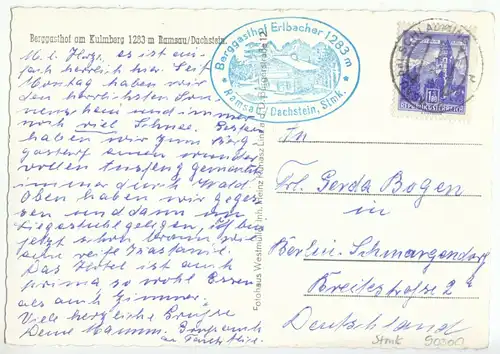 Berggasthof am Kulmberg 1283 m Ramsau/Dachstein.
M. l. es ist ein-
fach herrlich hier. Seit
Montag haben wir
den herrlichsten Son-
nenschein und immer
noch viel Schnee. Gestern
haben wir zum Berg-
gasthof einen wunder-
vollen Ausflug gemacht
immer durch Wald.
Oben haben wir geges-
sen und dann im
Liegestuhl gelegen, Ich bin
jetzt schon braun wie
eine reife Kastanie.
Das Hotel ist auch
prima, so wohl Essen
als auch Zimmer.
Viele herzliche Grüße
Deine Mamm. Gruß auch
an
Berggasthof Erlbacher 1283 m
* Ramsau/Dachstein, Stmk. *
Fotohaus Westmüller Inh. Heinz Linz
REPUBLIK ÖSTERREICH
An
Frl. Gerda Bogen
in
Berlin-Schmargendorf
Breitestraße 2
Deutschland
Stmk